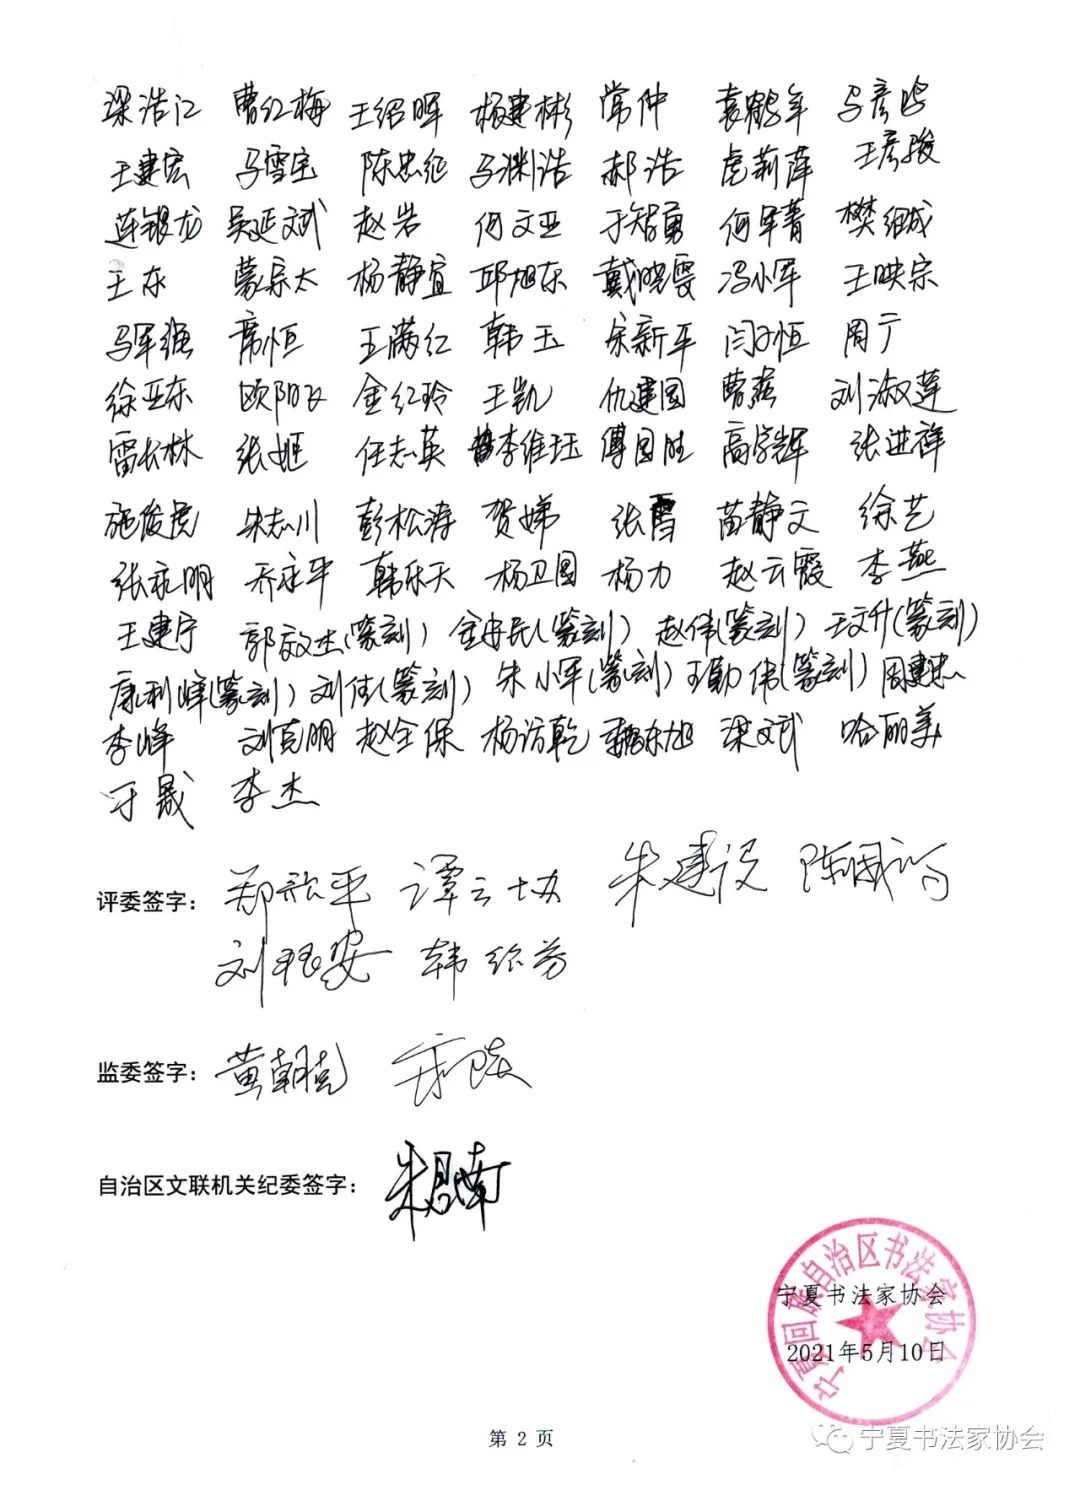 梁浩江 曹红梅 王绍晖 杨建彬 常仲 袁鹤年 马彦鸣
王建宏 马雪宝 陈忠征 马渊浩 郝浩 虎莉萍 王彦骏
连银龙 吴延斌 赵岩 何文亚 于智勇 何军菁 樊继成
王东 蒙宗太 杨静宜 邱旭东 戴晓雯 冯小军 王映宗
马军强 席恒 王满红 韩玉 余新平 闫子恒 周广
徐亚东 欧阳飞 金红玲 王凯 仇建国 曹燕 刘淑莲
雷长林 张姬 任志英 李维珏 傅国胜 高学辉 张进祥
施俊虎 朱志川 彭松涛 贺娣 张雪 苗静文 徐艺
张永明 乔永平 韩乐天 杨卫国 杨力 赵云霞 李燕
王建宁 郭效杰(篆刻) (篆刻) 赵伟(篆刻) 王文升(篆刻)
康利峰(篆刻) 刘佳(篆刻) 朱小军(篆刻) 王勤伟(篆刻) 周建忠
李峰 刘克明 赵全保 杨访乾 魏东旭 梁文斌 哈丽美
于晟 李杰
评委签字: 郑歌平 谭云协 朱建设 陈国鸿
刘银安 韩绍芳
监委签字: 黄朝彪
自治区文联机关纪委签字: 朱昌南
宁夏回族自治区书法家协会
宁夏书法家协会
2021年5月10日
第 2 页
宁夏书法家协会